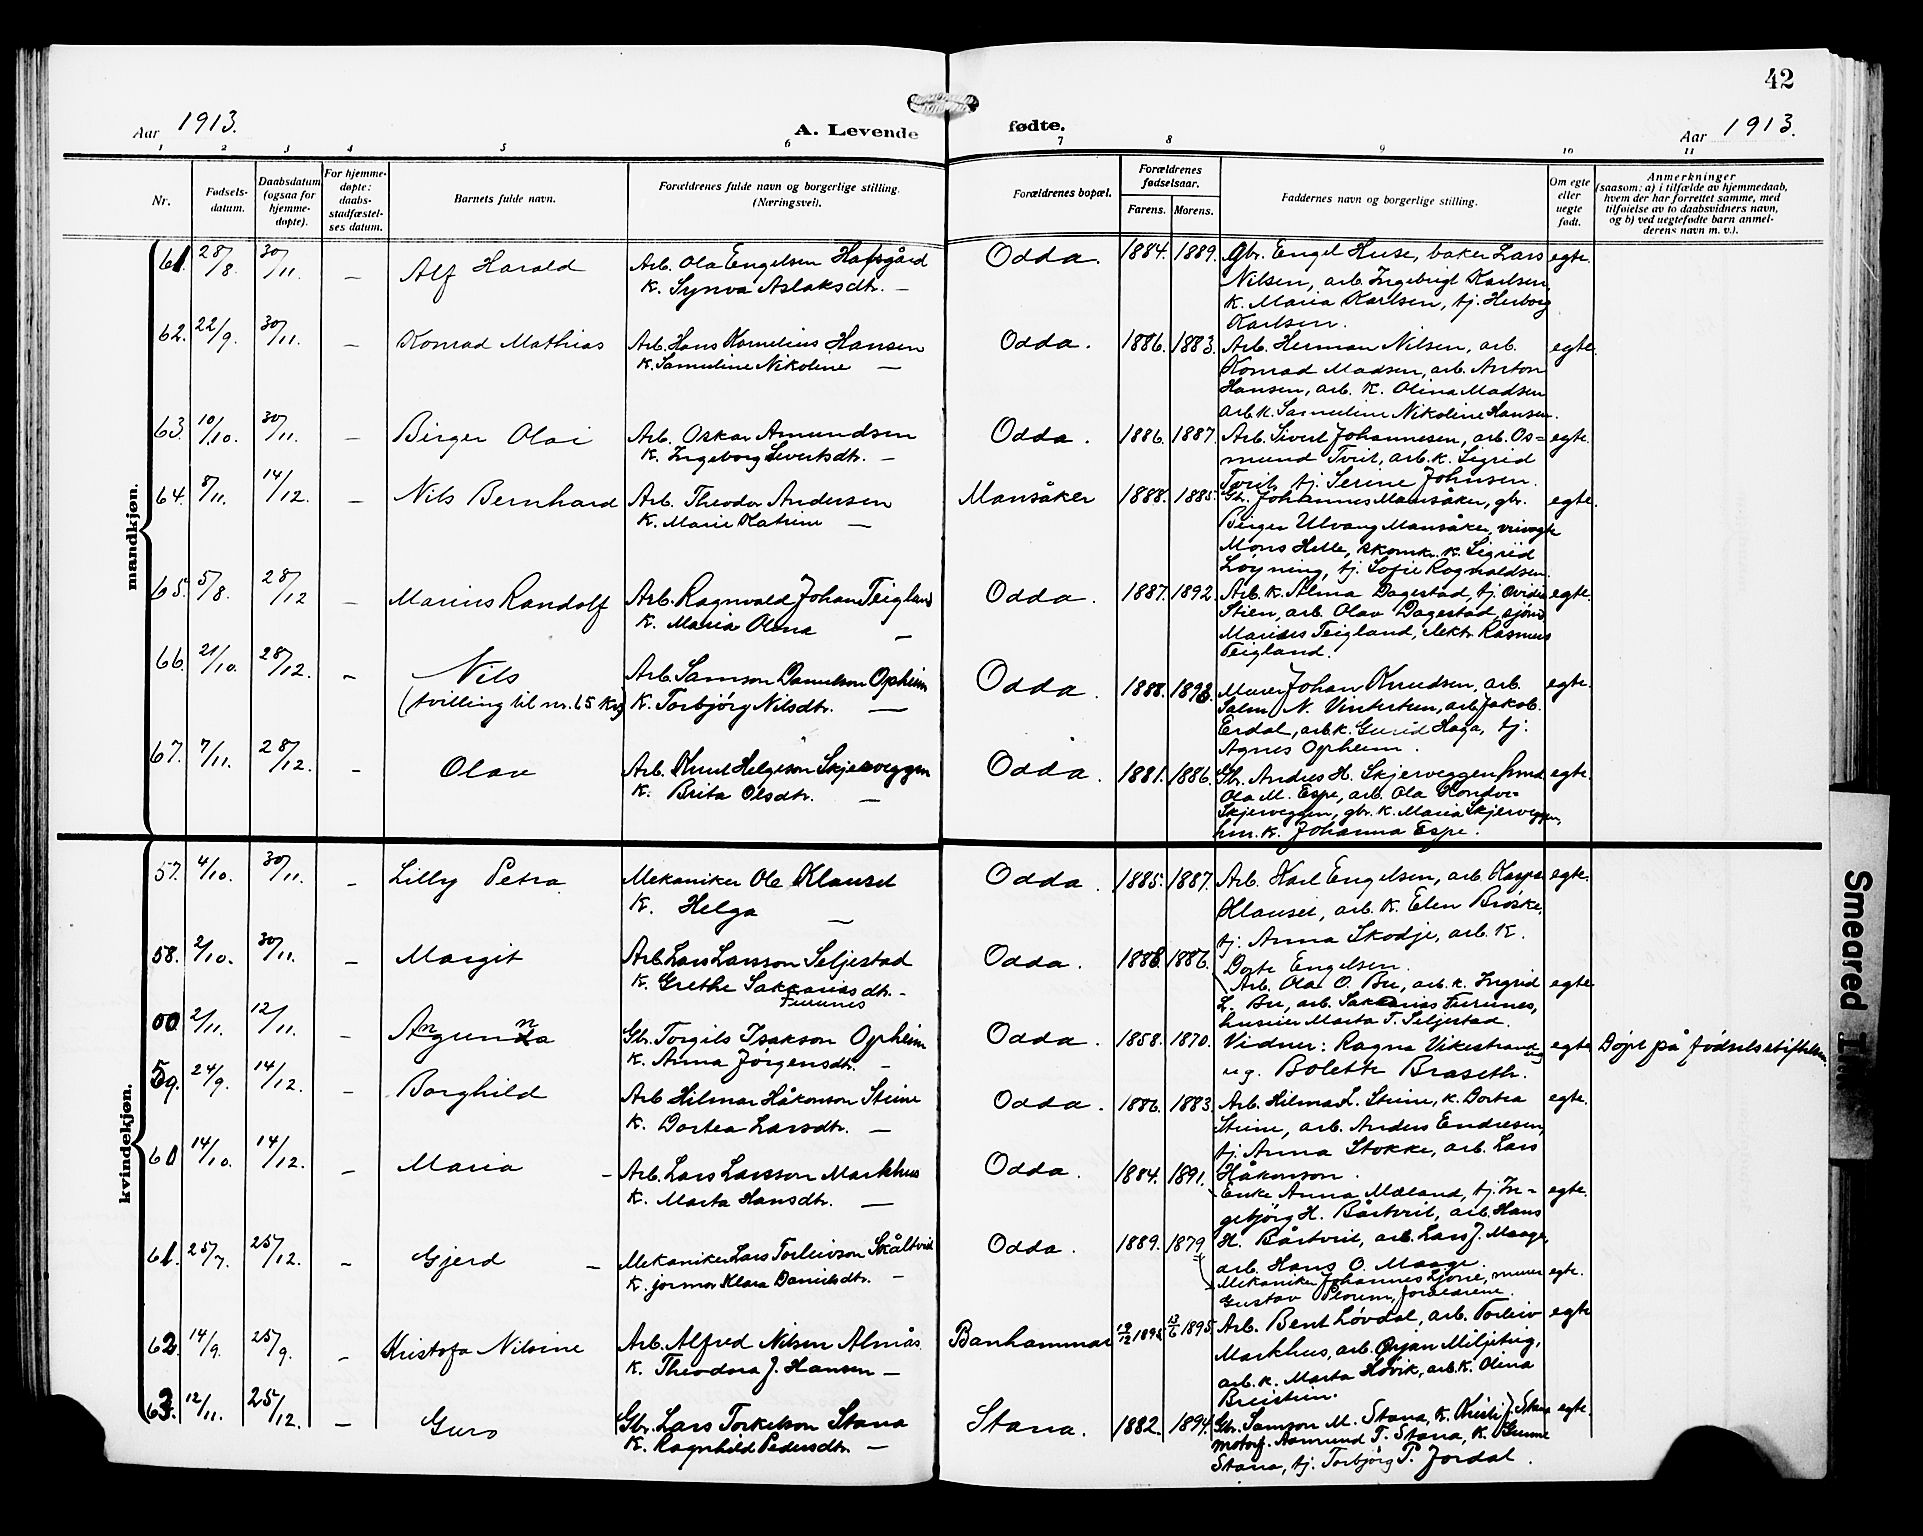 42
Aar 1913.
A. Levende fødte.
Aar 1913.
1 2 3 4 5 6 7 8 9 10 11
Nr.
Fødsels-
datum.
Daabsdatum
(ogsaa for
hjemme-
døpte).
For hjemme-
døpte:
daabs-
stadfæstel-
ses datum.
Barnets fulde navn.
Forældrenes fulde navn og borgerlige stilling.
(Næringsvei).
Forældrenes bopæl.
Forældrenes
fødselsaar.
Farens. Morens.
Faddernes navn og borgerlige stilling.
Om egte
eller
uegte
født.
Anmerkninger
(saasom: a) i tilfælde av hjemmedaab,
hvem der har forrettet samme, med
tilføielse av to daabsvidners navn,
og b) ved uegtefødte barn anmel-
derens navn m. v.).
mandkjøn.
61. 28/8. 30/11. – Alf Harald
Arb. Ola Engelsen Hafsgård
K. Synva Aslaksdtr. –
Odda. 1884. 1889.
Gbr. Engel Huse, baker Lars
Nilsen, arb. Ingebrigt Karlsen,
K. Maria Karlsen, tj. Herborg
Karlsen.
egte.
62. 22/9. 30/11. – Konrad Mathias
Arb. Hans Kornelius Hansen
K. Samuline Nikoline –
Odda. 1886. 1883.
Arb. Herman Nilsen, arb.
Konrad Madsen, arb. Anton
Hansen, arb. K. Olina Madsen
arb. K. Samueline Nikoline Hansen.
egte.
63. 10/10. 30/11. – Birger Olai
Arb. Oskar Amundsen
K. Ingeborg Sivertsdtr. –
Odda. 1886. 1887.
Arb. Sivert Johannesen, arb. Os=
mund Tveit, arb. k. Sigrid
Tveit, tj. Serine Johnsen.
egte.
64. 8/11. 14/12. – Nils Bernhard
Arb. Theodor Andersen
K. Marie Katrine –
Mansåker 1888. 1885.
Gb. Johannes Mansåker, gbr.
Birger Ulvang Mansåker,
Mons Helle, skomk. k. Sigrid
Løyning, tj. Sofie Ragnvaldsen.
egte.
65. 5/8. 28/12 – Marius Randolf
Arb. Ragnvald Johan Teigland
K. Maria Olena –
Odda. 1887. 1892.
Arb. K. Alma Dagestad, tj. Ovidia
Stien, arb. Olav Dagestad, sjøm.
Marius Teigland, elektr. Rasmus
Teigland.
egte.
66. 21/10. 28/12. – Nils
(tvilling til nr. 65 Kv.)
Arb. Samson Danielson Opheim
K. Torbjørg Nilsdtr. –
Odda. 1888. 1893.
Murer Johan Knudsen, arb.
Salm. N. Vintertun, arb. Jakob
Erdal, arb. k. Gurid Haga, tj.
Agnes Opheim.
egte.
67. 7/11. 28/12. – Olav
Arb. Knut Helgeson Skjerveggen
K. Brita Olsdtr. –
Odda. 1881. 1886.
Gb. Andres H. Skjerveggen,
Ola M. Espe, arb. Ola
Skjerveggen, gbr. K. Maria Skjerveggen,
hm. K. Johanna Espe.
egte.
kvindekjøn.
57. 4/10. 30/11. – Lilly Petra
Mekaniker Ole Klauset
K. Helga –
Odda. 1885. 1887.
Arb. Karl Engelsen, arb. Kasper
Klauset, arb. K. Elen Brøske,
tj. Anna Skodje, arb. K.
Dorte Engelsen.
egte.
58. 2/10. 30/11. – Margit
Arb. Lars Larsson Seljestad
K. Grethe Sakkariasdtr. –
Furenes
Odda. 1888. 1886.
Arb. Olav O. Bu, arb. k. Ingrid
L. Bu, arb. Sakkarias Furenes,
husmor Marta T. Seljestad.
egte
00 2/11. 12/11. –
Gb. Torgils Isakson Opheim
K. Anna Jørgensdtr. –
Odda. 1858. 1870.
Vidner: Ragna Vikestrand
ug. Bolette Braseth.
egte Døpt på fødselsstiftelsen.
59. 24/9. 14/12. – Borghild
Arb. Hilmar Håkonson Steine
K. Dortea Larsdtr. –
Odda. 1886. 1883.
Arb. Hilmar L. Steine, K. Dortea
Steine, arb. Anders Endresen,
tj. Anna Stokke, arb. Lars
Håkonson.
egte.
60 14/10. 14/12. – Maria –
Arb. Lars Larsson Markhus
K. Marta Hansdtr. –
Odda. 1884. 1891.
Enke Anna Mæland, tj. In=
gebjørg H. Båstveit, arb. Hans
H. Båstveit, arb. Lars J. Maage,
arb. Hans O. Maage.
egte.
61. 25/7. 25/12. – Gjerd –
Mekaniker Lars Torleivson Skåltveit
K. jormor Klara Danielsdtr. –
Odda. 1889. 1879
Mekaniker Johannes Ljone, murer
Gustav, forældrene.
egte.
62 14/9. 25/9. – Kristofa Nilsine
Arb. Alfred Nilsen Alnås
K. Theodora J. Hansen –
Banhammar 19/12 1895 13/6 1895.
Arb. Bent Løvdal, arb. Torleiv
Markhus, arb. Ørjan Miljeteig,
arb. k. Marta Høvik, arb. K. Olina
Breistein.
egte
63. 12/11. 25/12. – Guro
Gbr. Lars Torkelson Stana
K. Ragnhild Pedersdtr. –
Stana. 1882. 1894.
Gbr. Samson M. Stana, K. Kristi J. Stana
motorf. Aamund T. Stana, K. Gunne
Stana, tj. Torbjørg P. Jordal.
egte.
Smeared